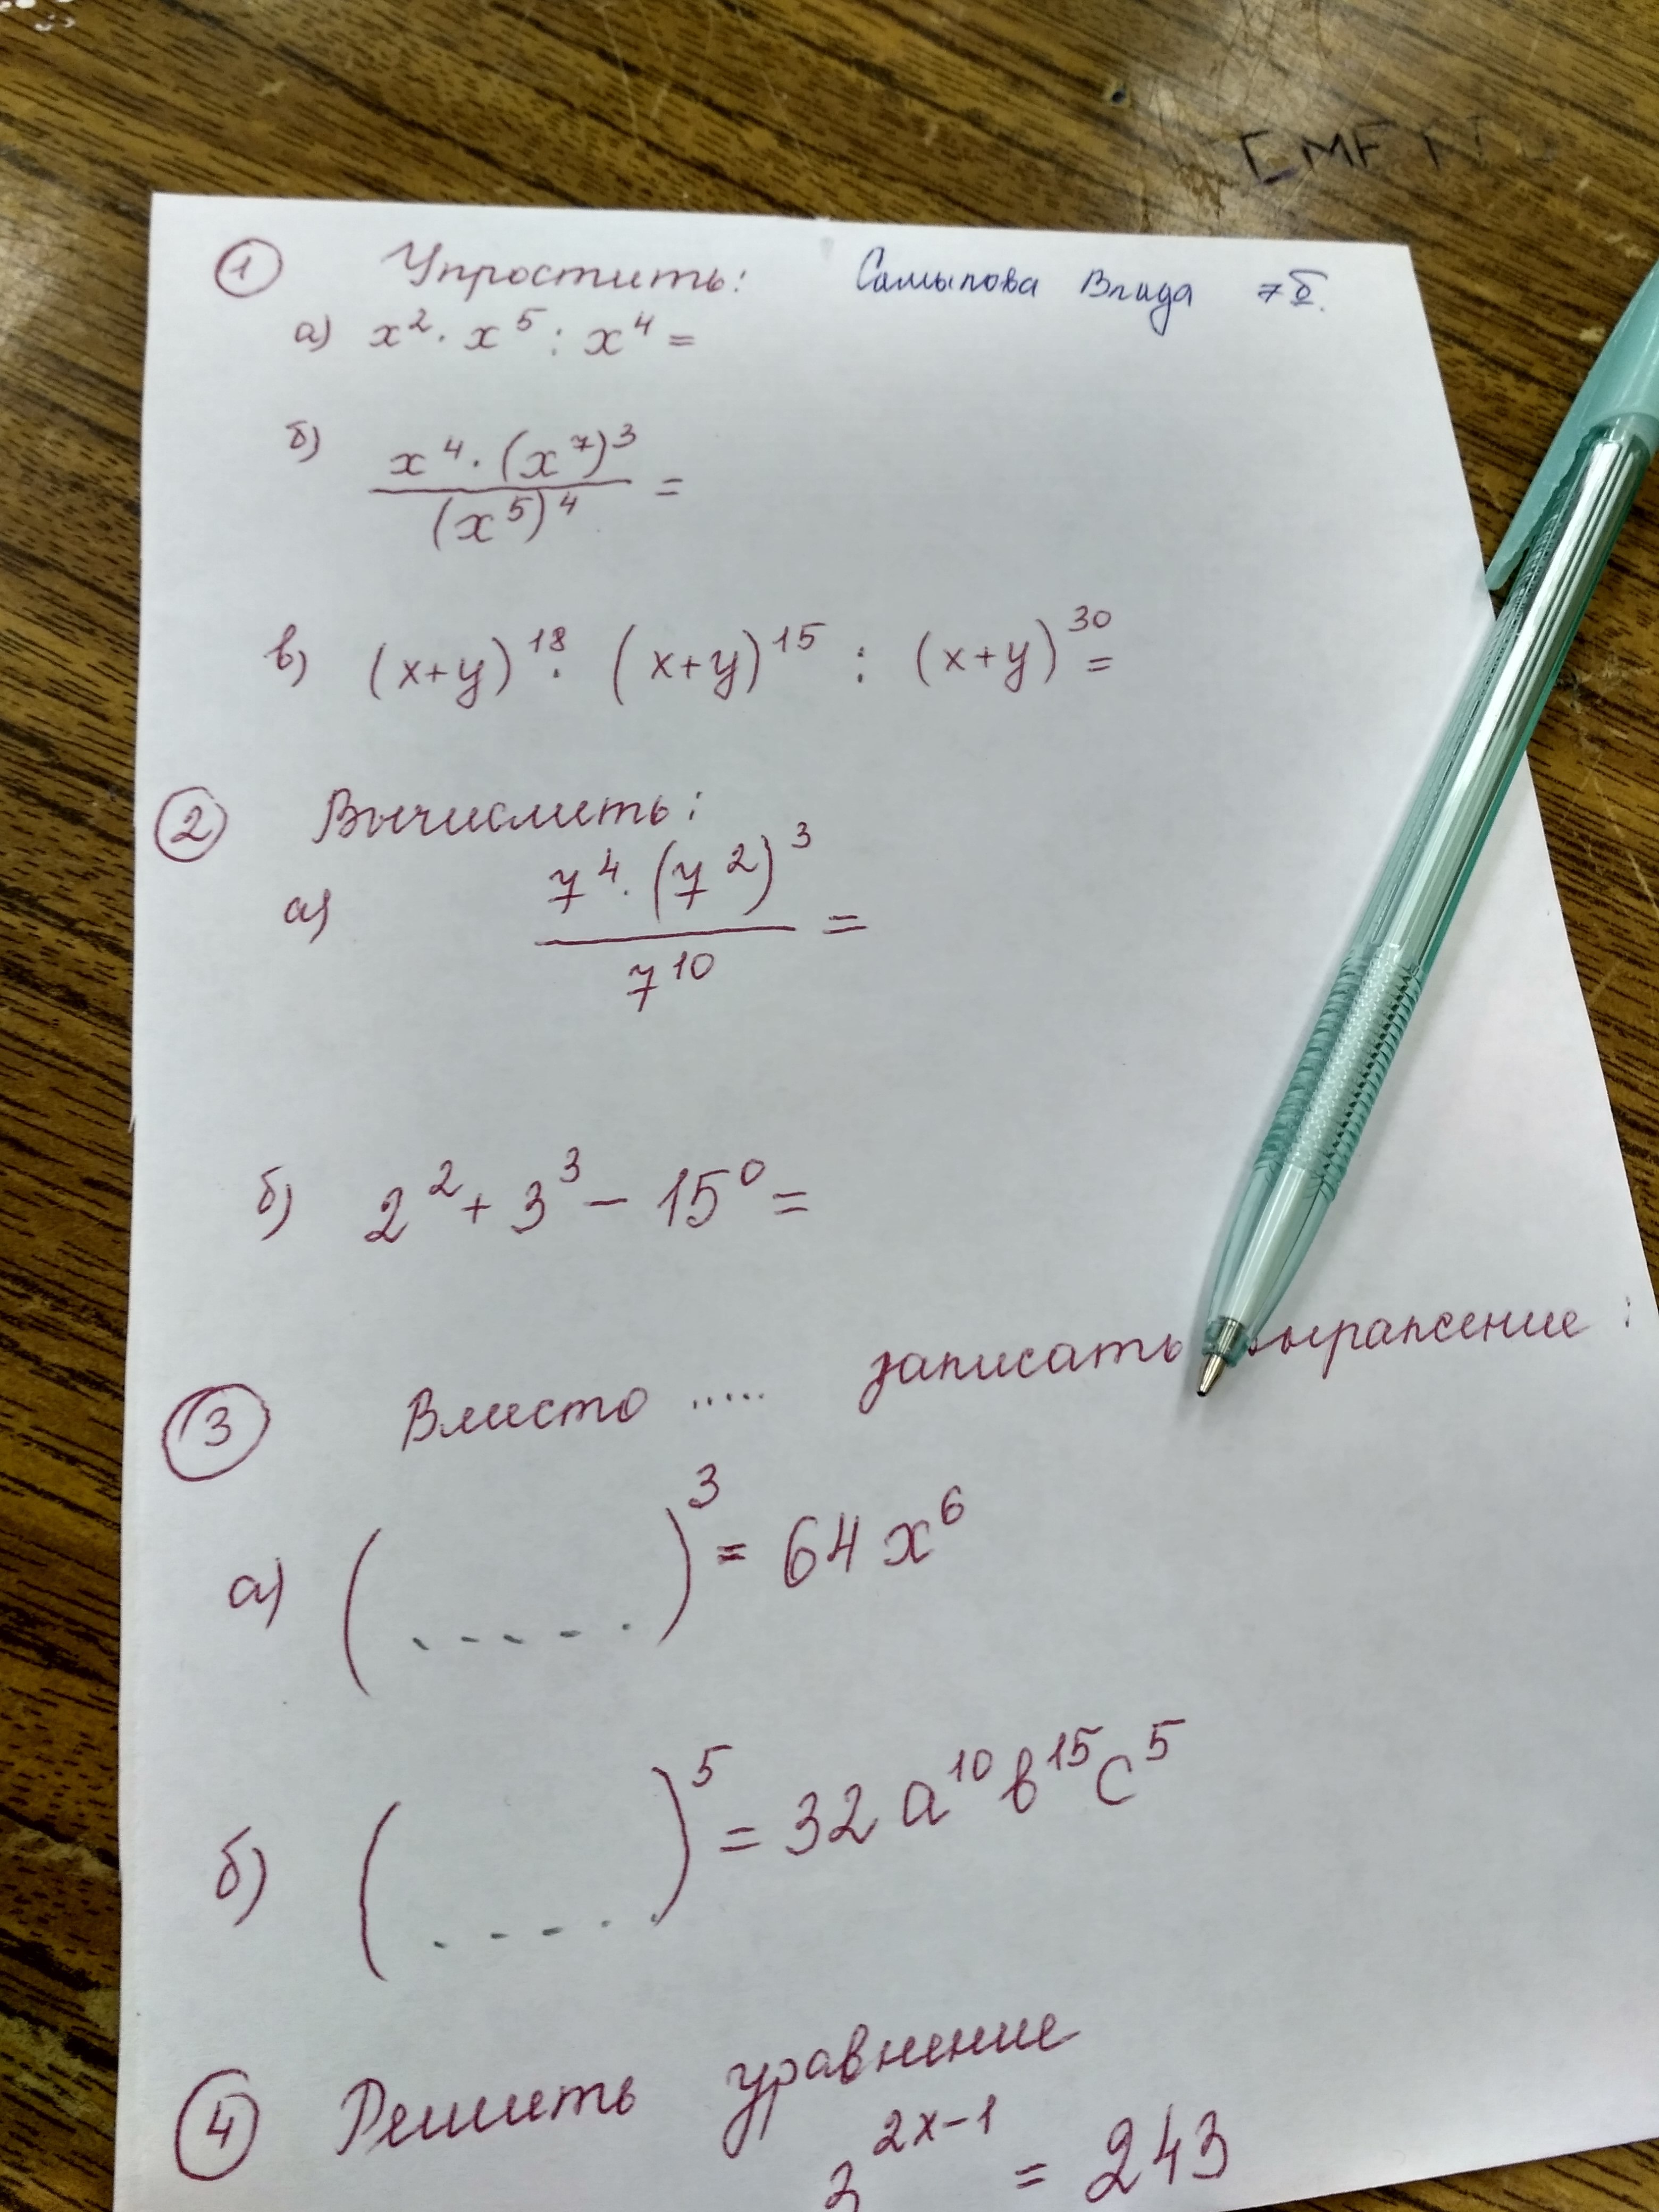 1 Упростить: Самылова Влада 7Б.
а) x² · x⁵ : x⁴ =
б) x⁴ · (x⁷)³
(x⁵)⁴ =
в) (x+y)¹⁸ · (x+y)¹⁵ : (x+y)³⁰ =
2 Вычислить:
а) 7⁴ · (7²)³
7¹⁰ =
б) 2² + 3³ – 15⁰ =
3 Вместо ..... записать выражение:
а) (.....)³ = 64x⁶
б) (.....)⁵ = 32a¹⁰b¹⁵c⁵
4 Решить уравнение
3²ˣ⁻¹ = 243